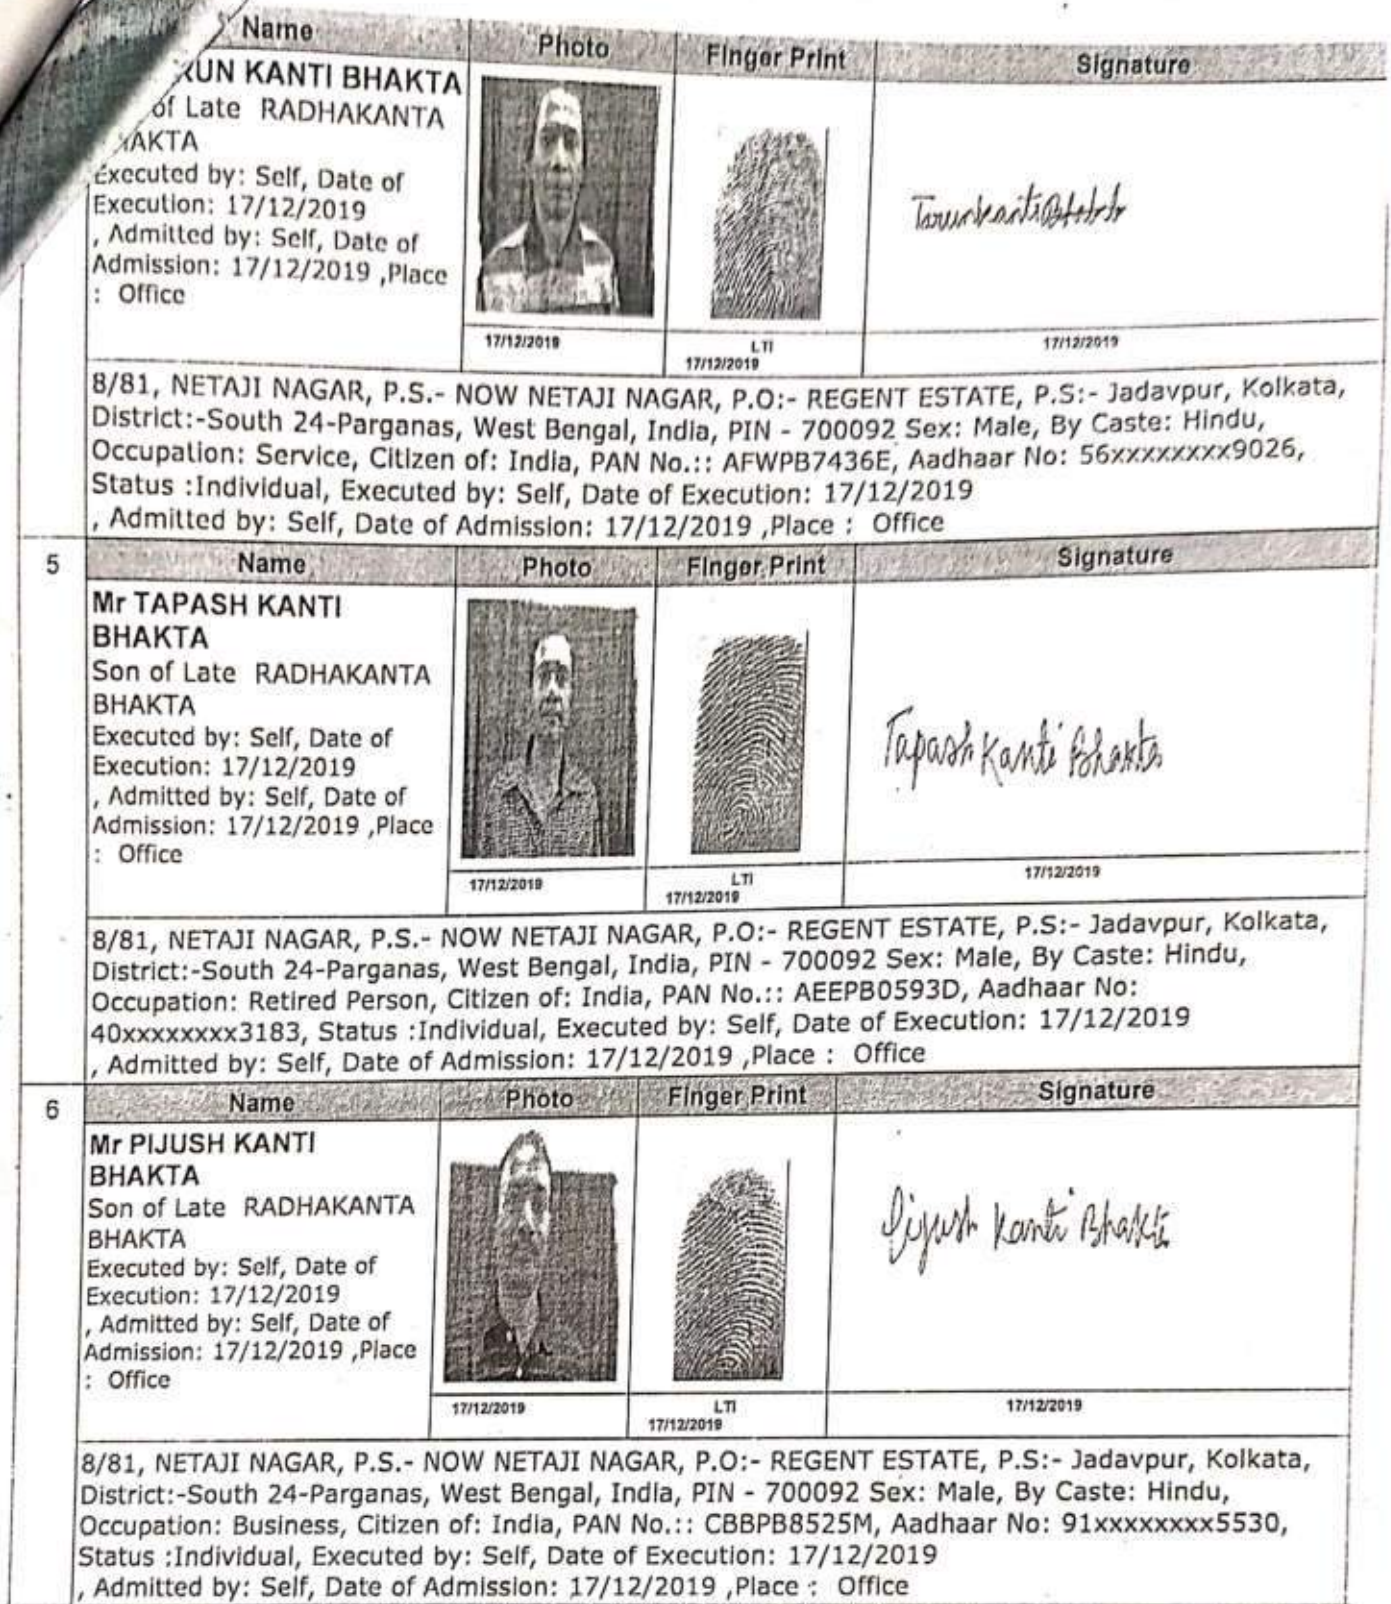 Name Photo Finger Print Signature
RUN KANTI BHAKTA
of Late RADHAKANTA
AKTA
Executed by: Self, Date of
Execution: 17/12/2019
, Admitted by: Self, Date of
Admission: 17/12/2019 ,Place
: Office
Tarunkanti Bhakta
17/12/2019
LTI
17/12/2019
17/12/2019
8/81, NETAJI NAGAR, P.S.- NOW NETAJI NAGAR, P.O:- REGENT ESTATE, P.S:- Jadavpur, Kolkata,
District:-South 24-Parganas, West Bengal, India, PIN - 700092 Sex: Male, By Caste: Hindu,
Occupation: Service, Citizen of: India, PAN No.:: AFWPB7436E, Aadhaar No: 56xxxxxxxx9026,
Status :Individual, Executed by: Self, Date of Execution: 17/12/2019
, Admitted by: Self, Date of Admission: 17/12/2019 ,Place : Office
5 Name Photo Finger Print Signature
Mr TAPASH KANTI
BHAKTA
Son of Late RADHAKANTA
BHAKTA
Executed by: Self, Date of
Execution: 17/12/2019
, Admitted by: Self, Date of
Admission: 17/12/2019 ,Place
: Office
Tapash Kanti Bhakta
17/12/2019
LTI
17/12/2019
17/12/2019
8/81, NETAJI NAGAR, P.S.- NOW NETAJI NAGAR, P.O:- REGENT ESTATE, P.S:- Jadavpur, Kolkata,
District:-South 24-Parganas, West Bengal, India, PIN - 700092 Sex: Male, By Caste: Hindu,
Occupation: Retired Person, Citizen of: India, PAN No.:: AEEPB0593D, Aadhaar No:
40xxxxxxxx3183, Status :Individual, Executed by: Self, Date of Execution: 17/12/2019
, Admitted by: Self, Date of Admission: 17/12/2019 ,Place : Office
6 Name Photo Finger Print Signature
Mr PIJUSH KANTI
BHAKTA
Son of Late RADHAKANTA
BHAKTA
Executed by: Self, Date of
Execution: 17/12/2019
, Admitted by: Self, Date of
Admission: 17/12/2019 ,Place
: Office
Pijush Kanti Bhakta
17/12/2019
LTI
17/12/2019
17/12/2019
8/81, NETAJI NAGAR, P.S.- NOW NETAJI NAGAR, P.O:- REGENT ESTATE, P.S:- Jadavpur, Kolkata,
District:-South 24-Parganas, West Bengal, India, PIN - 700092 Sex: Male, By Caste: Hindu,
Occupation: Business, Citizen of: India, PAN No.:: CBBPB8525M, Aadhaar No: 91xxxxxxxx5530,
Status :Individual, Executed by: Self, Date of Execution: 17/12/2019
, Admitted by: Self, Date of Admission: 17/12/2019 ,Place : Office